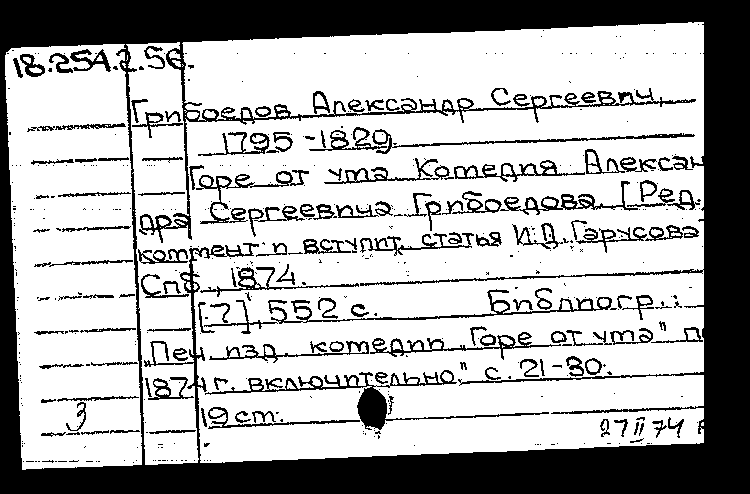 18.254.2.56.
Грибоедов, Александр Сергеевич,
1795-1829.
Горе от ума Комедия Алексан
дра Сергеевича Грибоедова. [Ред.,
коммент и вступит. статья И.Д. Гарусова]
Спб., 1874.
[?], 552 с. Библиогр.:
„Печ. изд. комедии „Горе от ума" п
1874 г. включительно." с. 21-30.
3 19 ст.
27 II 74